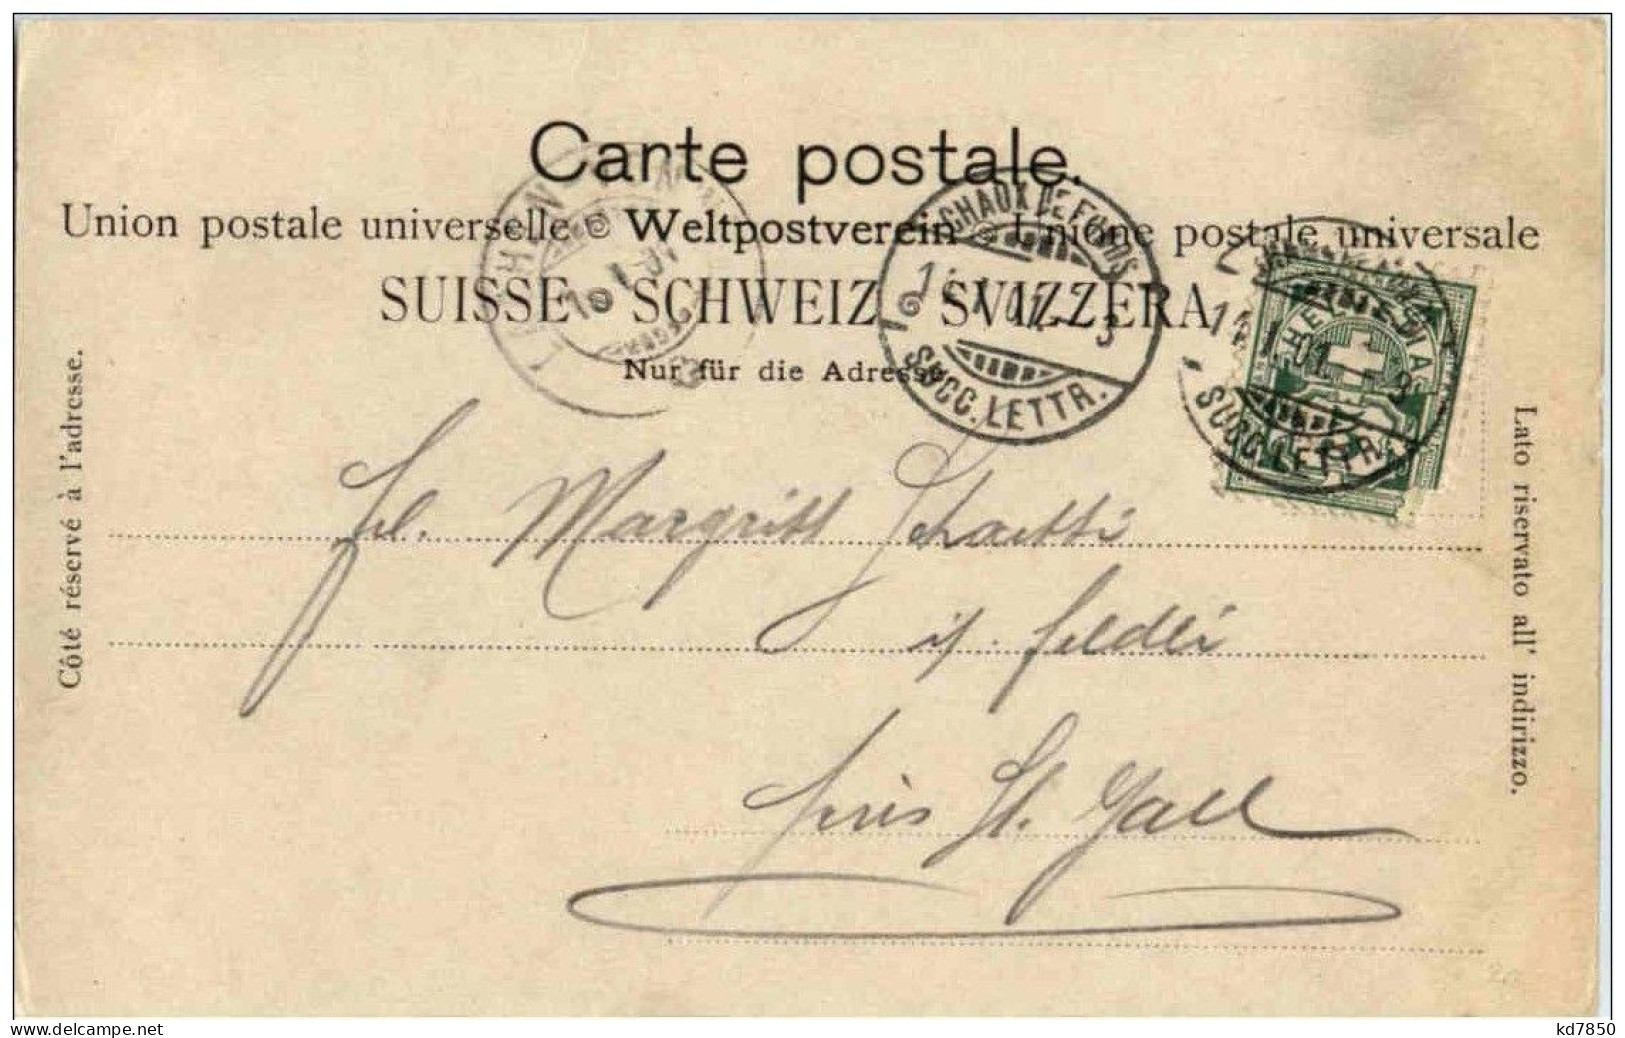 Carte postale.
Union postale universelle Weltpostverein Unione postale universale
SUISSE SCHWEIZ SVIZZERA
Nur für die Adresse
Côté réservé à l'adresse.
Lato riservato all' indirizzo.
CHAUX DE FONDS
SUCC. LETTR.
HELVETIA
14.I.01.
SUCC. LETTR.
Margritt
St. Gall
www.delcampe.net
kd7850